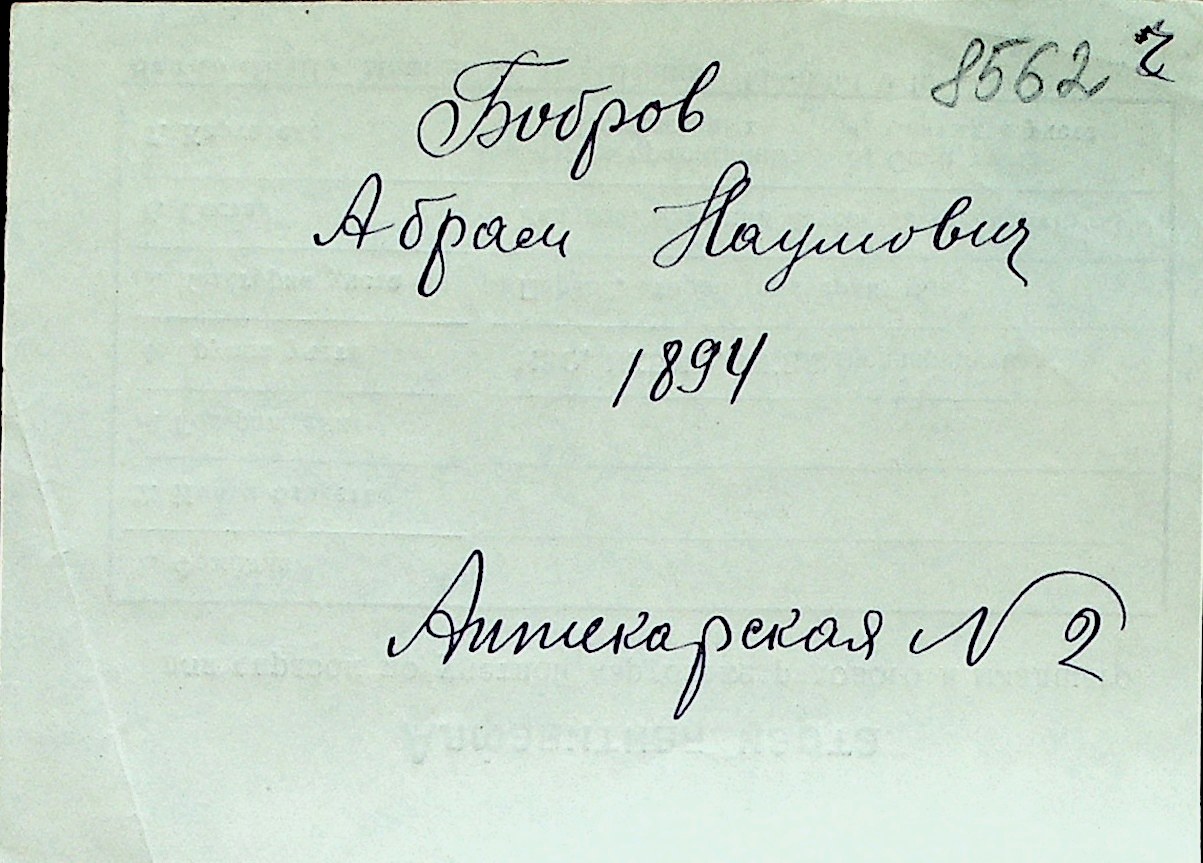 8562
Бобров
Абрам Наумович
1894
Аптекарская N 2